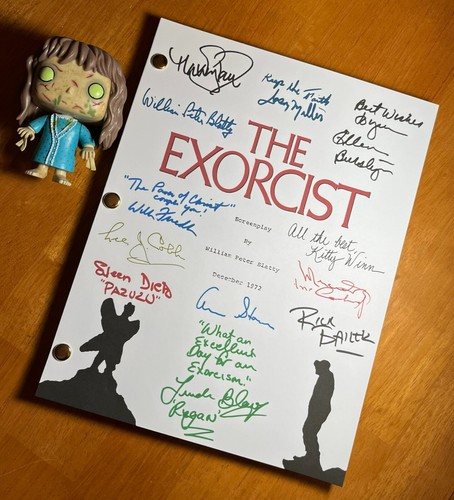 Keep the Faith
Jason Miller
Best Wishes
Ellen
Burstyn
William Peter Blatty
THE
EXORCIST
"The Power of Christ
compels you!"
Screenplay
By
William Peter Blatty
December 1972
All the best,
Kitty Winn
Lee J Cobb
Eileen Dietz
"PAZUZU"
"What an
Excellent
Day for an
Exorcism."
Linda Blair
'Regan'